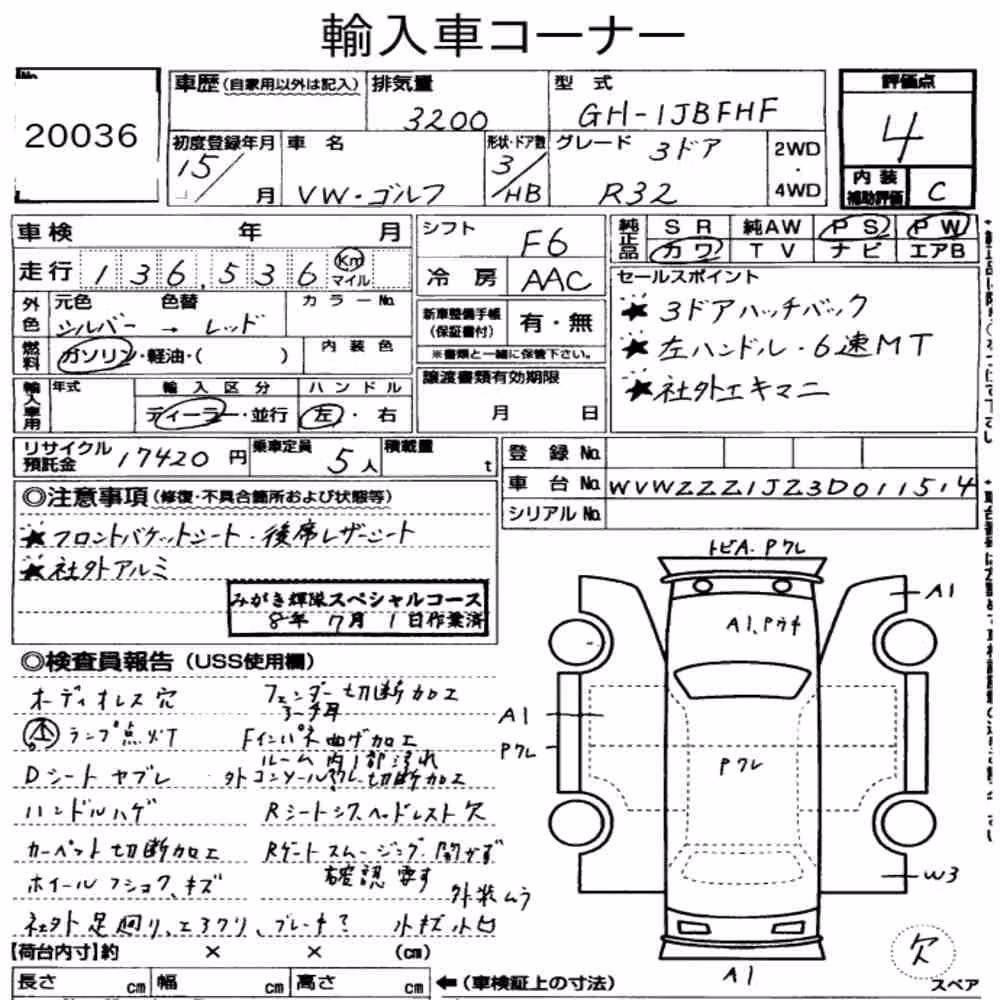 輸入車コーナー
No.
20036
車歴 (自家用以外は記入)
排気量
3200
型式
GH-1JBFHF
評価点
4
初度登録年月
15/ 月
車名
VW・ゴルフ
形状・ドア数
3/HB
グレード
3ドア
R32
2WD
・
4WD
内装
補助評価
C
車検 年 月
走行 136,536 Km マイル
シフト
F6
冷房 AAC
純正品
SR 純AW PS PW
カワ TV ナビ エアB
セールスポイント
★3ドアハッチバック
★左ハンドル・6速MT
★社外エキマニ
外色
元色 色替 カラーNo.
シルバー → レッド
燃料
ガソリン・軽油・( )
内装色
新車整備手帳
(保証書付)
有・無
※書類と一緒に保管下さい。
輸入車用
年式
輸入区分
ディーラー・並行
ハンドル
左・右
譲渡書類有効期限
月 日
リサイクル
預託金
17420円
乗車定員
5人
積載量
t
登録No.
車台No. WVWZZZ1JZ3D011514
シリアルNo.
◎注意事項(修復・不具合箇所および状態等)
★フロントバケットシート・後席レザーシート
★社外アルミ
みがき輝隊スペシャルコース
8年 7月 1日作業済
◎検査員報告(USS使用欄)
オーディオレス穴
ランプ点灯
Dシートヤブレ
ハンドルハゲ
カーペット切断加工
ホイールフショク、キズ
社外足廻り、エアクリ、ブレーキ?
フェンダー切断加工
アーチ耳
Fインパネ曲ゲ加工
ルーム内1部汚れ
外コンソールワレ切断加工
RシートシワヘッドレストX欠
Rゲートスムージング開かず
確認要す
外装ムラ
小キズ小凹
トビA・Pワレ
A1
A1、Pウキ
A1
Pワレ
Pワレ
W3
A1
欠
スペア
【荷台内寸】約 × × (cm)
長さ cm 幅 cm 高さ cm
←(車検証上の寸法)